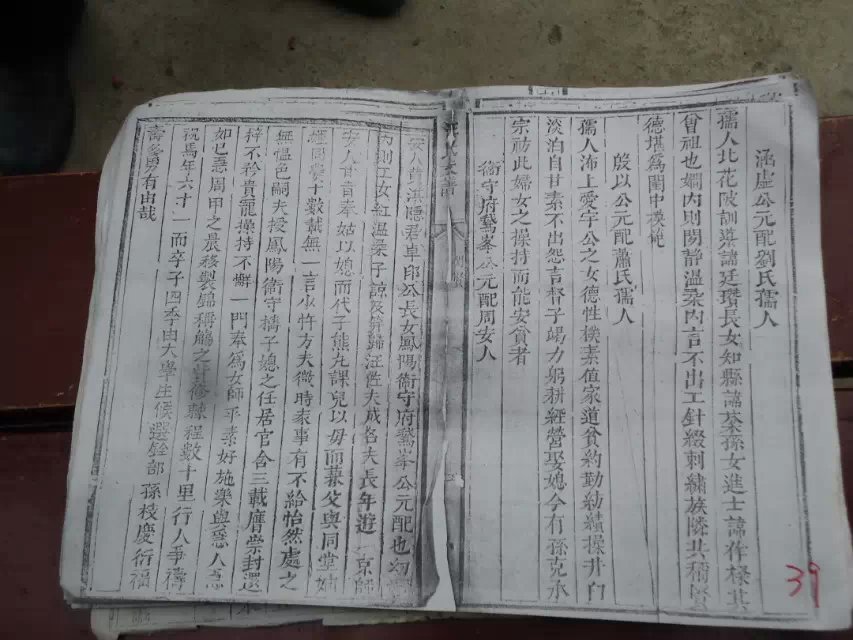 涵虛公元配劉氏孺人
孺人北花陂訓導諱廷瓚長女知縣諱棻孫女進士諱作樑其
曾祖也嫺內則閑靜溫柔內言不出工針綴刺繡族隣共稱賢
德堪為閨中模範
殷以公元配蕭氏孺人
孺人沛上愛字公之女德性樸素值家道貧約勤紡績操井臼
淡泊自甘素不出怨言督子竭力躬耕經營娶媳今有孫克承
宗祊此婦女之操持而能安貧者
衛守府鷟峯公元配周安人
安人黃淇隱君卓印公長女鳳陽衛守府鷟峯公元配也幼嫺
內則工女紅溫柔子諒及笄歸汪佐夫成名夫長年遊京師
安人甘旨奉姑以媳而代子熊丸課兒以母而兼父與同堂妯
娌周旋十數載無一言少忤方夫微時家事有不給怡然處之
無慍色嗣夫授鳳陽衛守擕子媳之任居官舍三載膺崇封還
持不矜貴寵操持不懈一門奉為女師乎素好施樂與惡人急
如已惡周甲之晨移製錦稱觴之 修 程數十里行人爭禱
祝焉年六十一而卒子四季由大學生候選銓部 孫枝慶衍福
壽多男有由哉
39